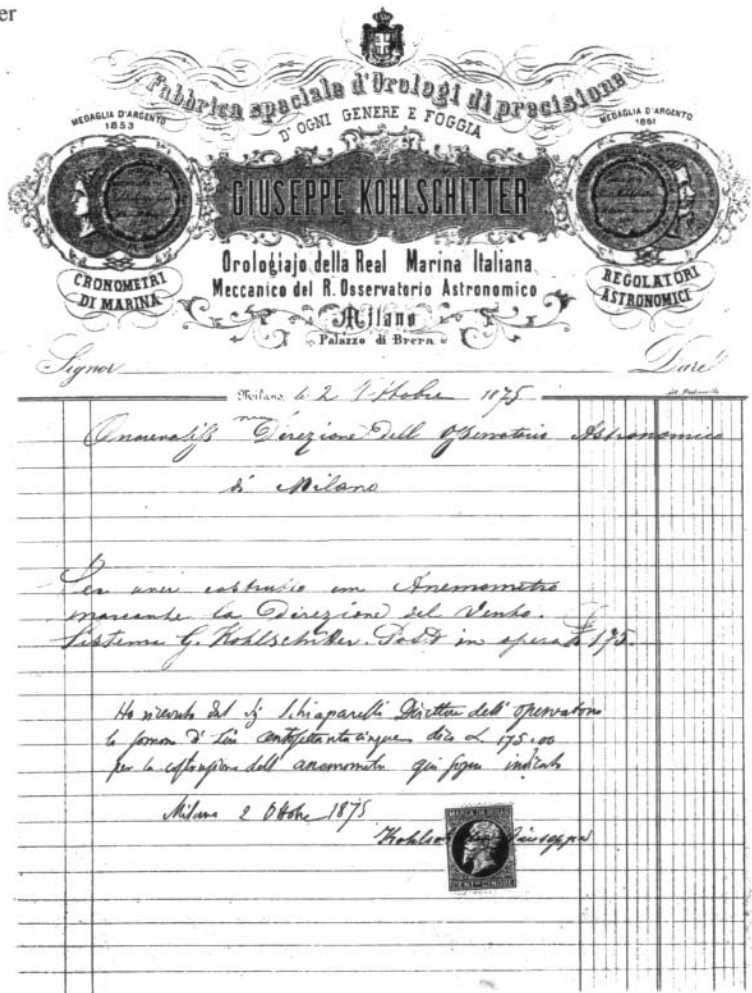 er
Fabbrica speciale d'Orologi di precisione
D'OGNI GENERE E FOGGIA
MEDAGLIA D'ARGENTO
1853
MEDAGLIA D'ARGENTO
1861
GIUSEPPE KOHLSCHITTER
CRONOMETRI
DI MARINA
Orologiajo della Real Marina Italiana
Meccanico del R. Osservatorio Astronomico
Milano
Palazzo di Brera
REGOLATORI
ASTRONOMICI
Signor Dare
Milano, li 2 Ottobre 1875
Direzione Dell Osservatorio Astronomico
di Milano
Per aver costruito un Anemometro
marcante la Direzione del Vento.
Sistema G. Kohlschitter. in opera 175.
Ho ricevuto dal Sig Schiaparelli Direttore dell' osservatorio
la somma di Lire centosettantacinque dico L. 175.00
per la costruzione dell' anemometro qui sopra indicato
Milano 2 Ottobre 1875
Giuseppe